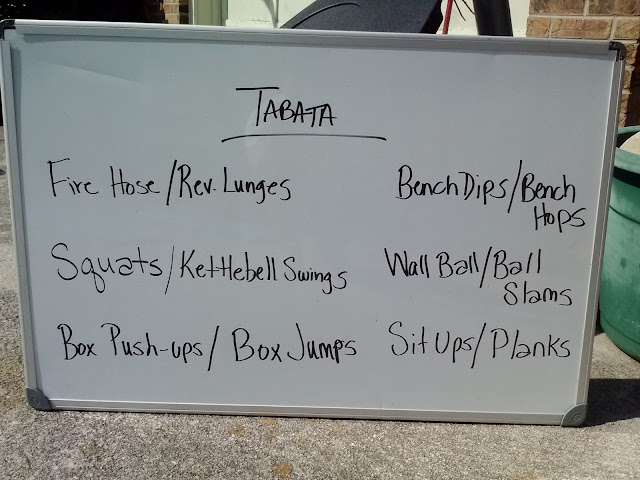 TABATA
Fire Hose/Rev. Lunges
Squats/Kettlebell Swings
Box Push-ups/Box Jumps
Bench Dips/Bench
Hops
Wall Ball/Ball
Slams
Sit Ups/Planks